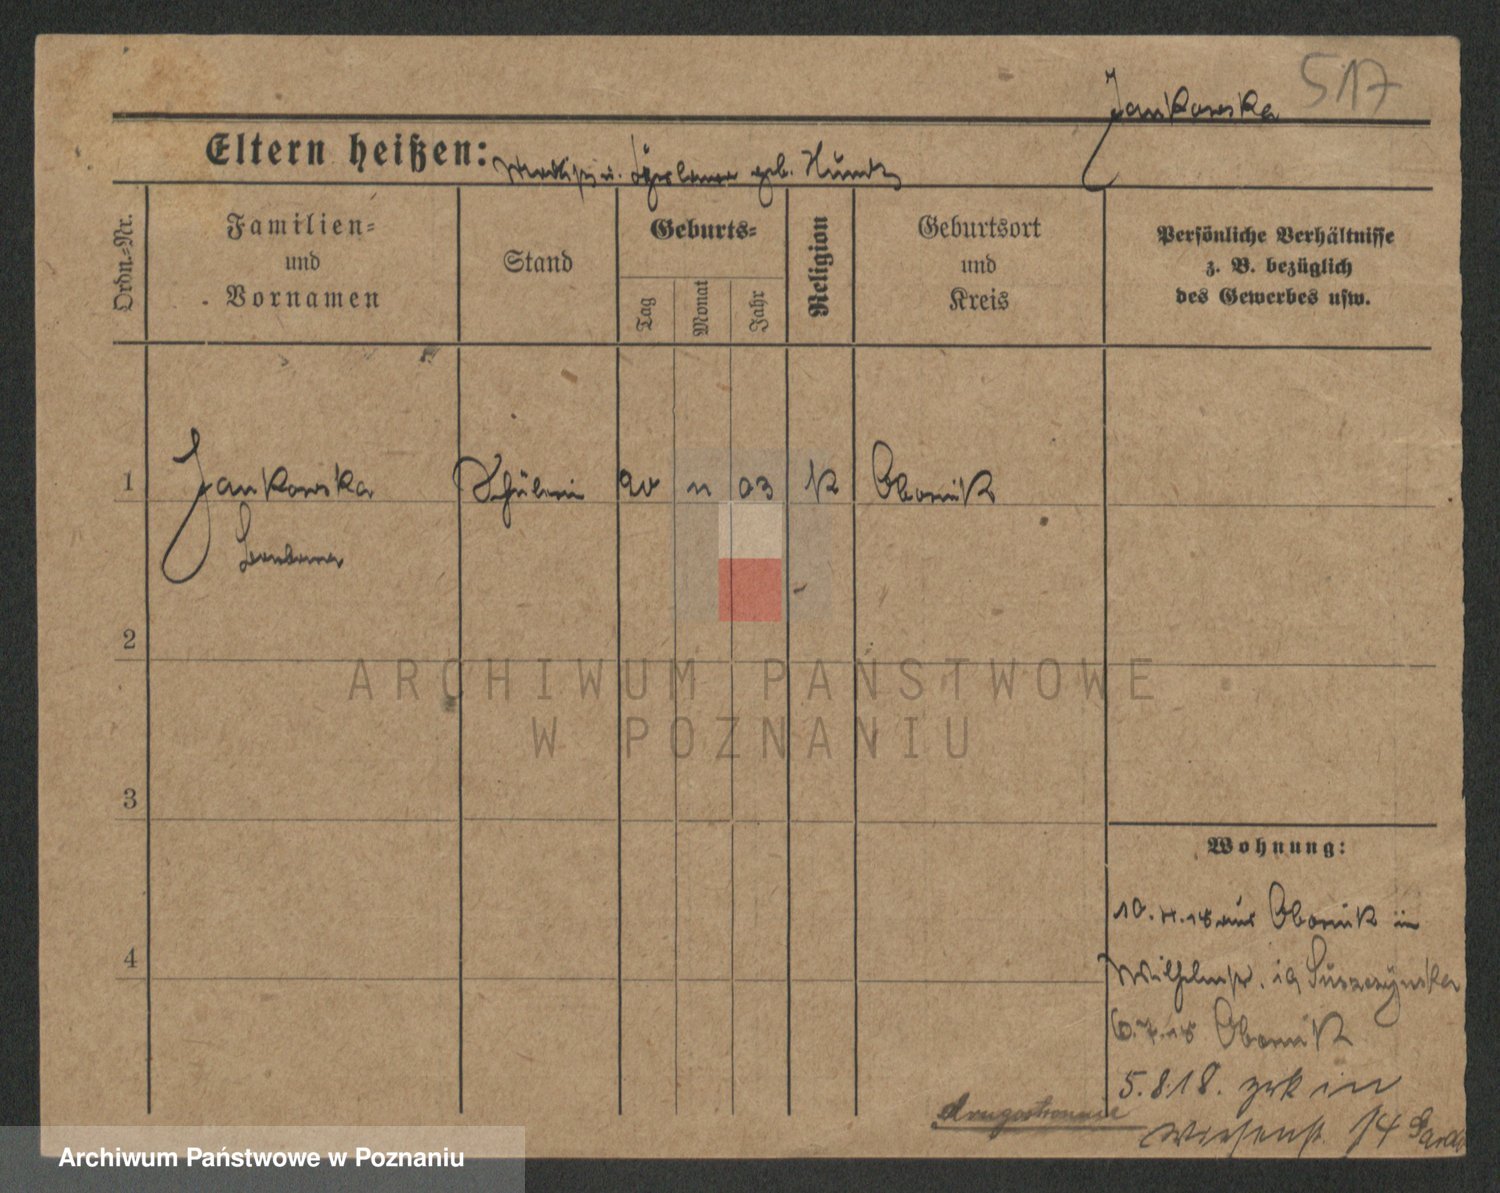 517
Jankowska
Eltern heißen: u. geb.
Ordn.=Nr.
Familien=
und
Vornamen
Stand
Geburts=
Tag
Monat
Jahr
Religion
Geburtsort
und
Kreis
Persönliche Verhältnisse
z. B. bezüglich
des Gewerbes usw.
1 Jankowska Schülerin 20 11 03 K Obornik
2
3
4
ARCHIWUM PAŃSTWOWE
W POZNANIU
Wohnung:
10. 4. 18 aus Obornik in
Wilhelmstr. Suszczynska
6.7.18 Obornik
5.8.18. zrk in
Wiesenst. 14
drugostronnie
Archiwum Państwowe w Poznaniu